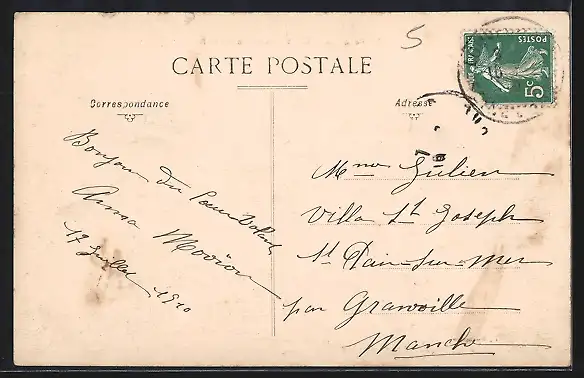 5
POSTES
5c
CARTE POSTALE
Correspondance
Adresse
Bonjour du
Anna
17 Juillet 1910
Mme Julien
Villa St Joseph
St Pair-sur-Mer
par Granville
Manche